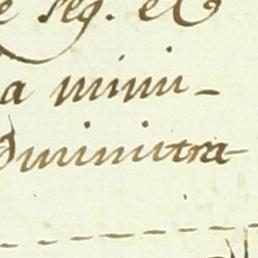 e seg. et
a minu-
dministra